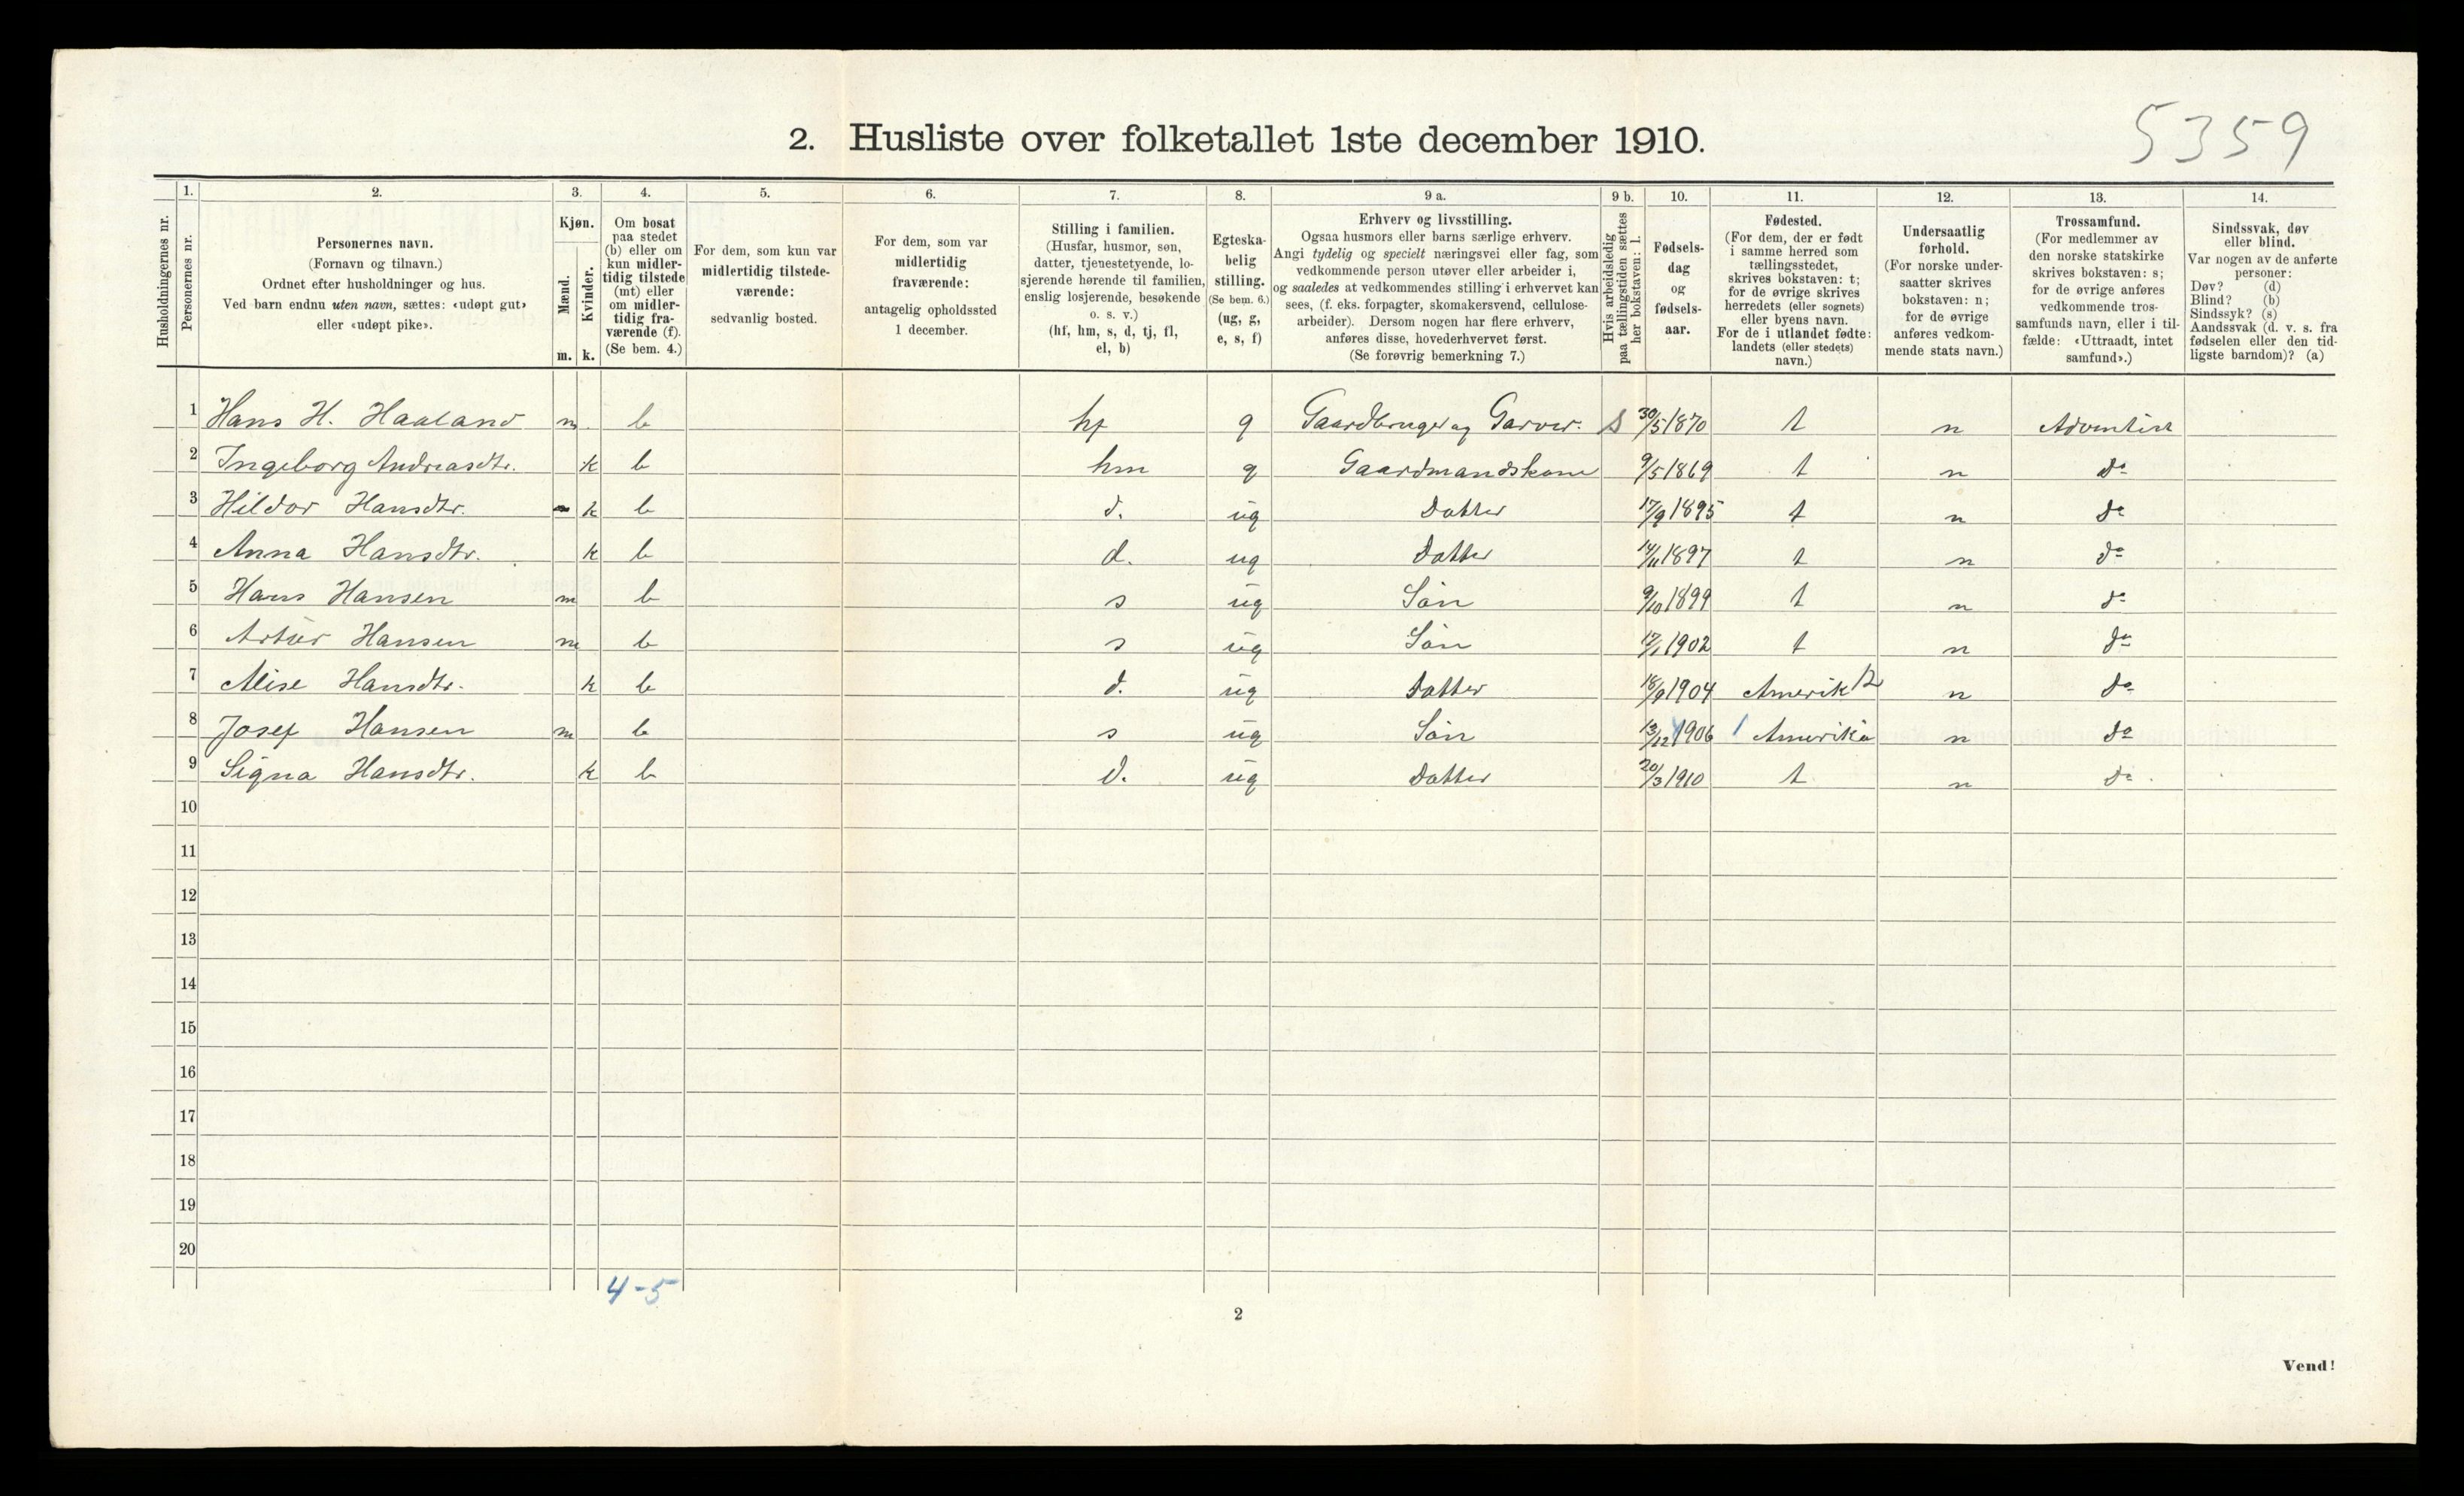 5359
2. Husliste over folketallet 1ste december 1910.
Husholdningernes nr.
1. Personernes nr.
2. Personernes navn.
(Fornavn og tilnavn.)
Ordnet efter husholdninger og hus.
Ved barn endnu uten navn, sættes: «udøpt gut»
eller «udøpt pike».
3. Kjøn.
Mænd. m.
Kvinder. k.
4. Om bosat
paa stedet
(b) eller om
kun midler-
tidig tilstede
(mt) eller
om midler-
tidig fra-
værende (f).
(Se bem. 4.)
5. For dem, som kun var
midlertidig tilstede-
værende:
sedvanlig bosted.
6. For dem, som var
midlertidig
fraværende:
antagelig opholdssted
1 december.
7. Stilling i familien.
(Husfar, husmor, søn,
datter, tjenestetyende, lo-
sjerende hørende til familien,
enslig losjerende, besøkende
o. s. v.)
(hf, hm, s, d, tj, fl,
el, b)
8. Egteska-
belig
stilling.
(Se bem. 6.)
(ug, g,
e, s, f)
9 a. Erhverv og livsstilling.
Ogsaa husmors eller barns særlige erhverv.
Angi tydelig og specielt næringsvei eller fag, som
vedkommende person utøver eller arbeider i,
og saaledes at vedkommendes stilling i erhvervet kan
sees, (f. eks. forpagter, skomakersvend, cellulose-
arbeider). Dersom nogen har flere erhverv,
anføres disse, hovederhvervet først.
(Se forøvrig bemerkning 7.)
9 b. Hvis arbeidsledig
paa tællingstiden sættes
her bokstaven: l.
10. Fødsels-
dag
og
fødsels-
aar.
11. Fødested.
(For dem, der er født
i samme herred som
tællingsstedet,
skrives bokstaven: t;
for de øvrige skrives
herredets (eller sognets)
eller byens navn.
For de i utlandet fødte:
landets (eller stedets)
navn.)
12. Undersaatlig
forhold.
(For norske under-
saatter skrives
bokstaven: n;
for de øvrige
anføres vedkom-
mende stats navn.)
13. Trossamfund.
(For medlemmer av
den norske statskirke
skrives bokstaven: s;
for de øvrige anføres
vedkommende tros-
samfunds navn, eller i til-
fælde: «Uttraadt, intet
samfund».)
14. Sindssvak, døv
eller blind.
Var nogen av de anførte
personer:
Døv? (d)
Blind? (b)
Sindssyk? (s)
Aandssvak (d. v. s. fra
fødselen eller den tid-
ligste barndom)? (a)
1 Hans H. Haaland m. b hf g Gaardbruger og Garver. S 30/5 1870 t n Adventist
2 Ingeborg Andreasdtr. k b hm g Gaardmandskone 9/5 1869 t n do
3 Hildor Hansdtr. k b d. ug Datter 17/9 1895 t n do
4 Anna Hansdtr. k b d. ug Datter 14/11 1897 t n do
5 Hans Hansen m b s ug Søn 9/10 1899 t n do
6 Artur Hansen m b s ug Søn 17/1 1902 t n do
7 Alise Hansdtr. k b d. ug Datter 18/9 1904 Amerika n do
8 Josef Hansen m b s ug Søn 13/12 1906 1 Amerika n do
9 Signa Hansdtr. k b d. ug Datter 20/3 1910 t n do
10
11
12
13
14
15
16
17
18
19
20
4-5
2
Vend!